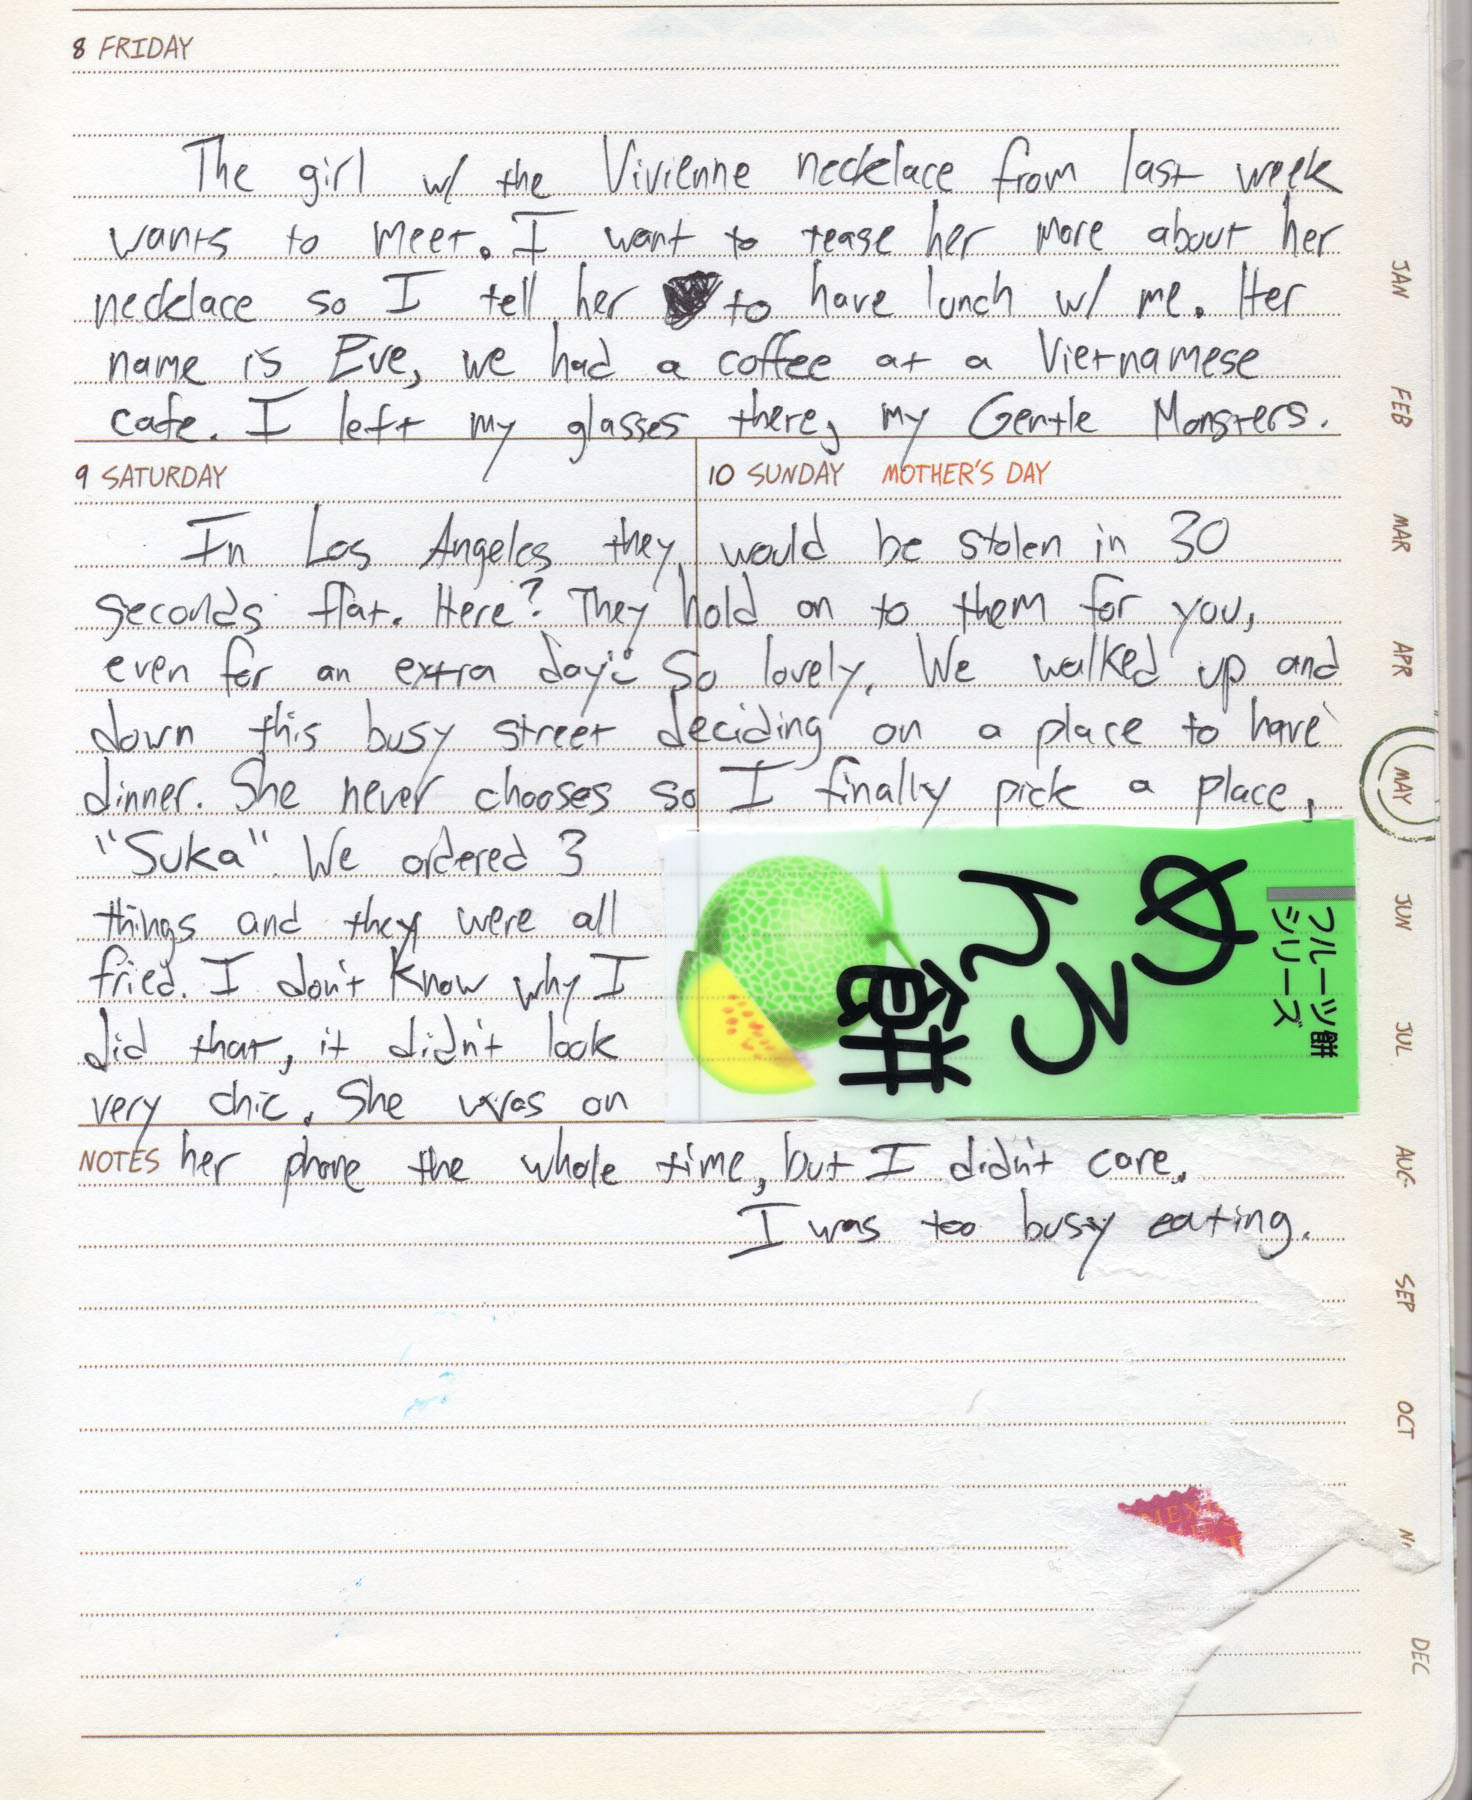 8 FRIDAY
The girl w/ the Vivienne necklace from last week
wants to meet. I want to tease her more about her
necklace so I tell her to have lunch w/ me. Her
name is Eve, we had a coffee at a Vietnamese
cafe. I left my glasses there, my Gentle Monsters.
9 SATURDAY
10 SUNDAY MOTHER'S DAY
In Los Angeles they would be stolen in 30
seconds flat. Here? They hold on to them for you,
even for an extra day. So lovely. We walked up and
down this busy street deciding on a place to have
dinner. She never chooses so I finally pick a place,
"Suka". We ordered 3
things and they were all
fried. I don't know why I
did that, it didn't look
very chic. She was on
NOTES her phone the whole time, but I didn't care.
I was too busy eating.
フルーツ餅
シリーズ
めろん餅
JAN
FEB
MAR
APR
MAY
JUN
JUL
AUG
SEP
OCT
DEC